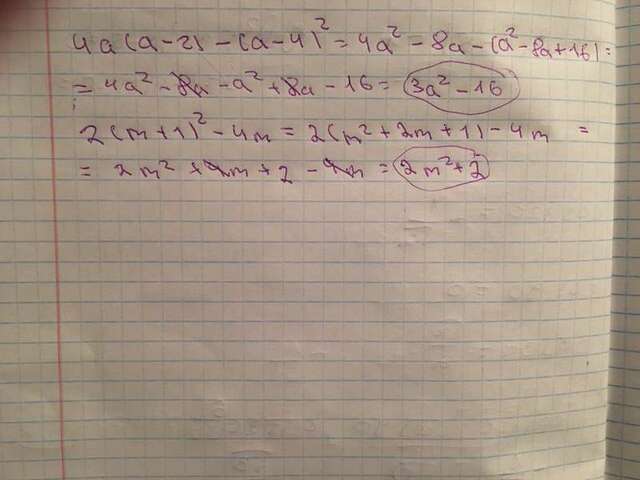 4a(a-2)-(a-4)² = 4a²-8a-(a²-8a+16) =
= 4a²-8a-a²+8a-16 = 3a²-16
2(m+1)²-4m = 2(m²+2m+1)-4m =
= 2m²+4m+2-4m = 2m²+2